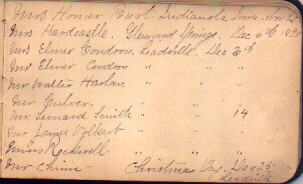 Mrs Homer Burt, Indianola Iowa. Nov 2
Mrs Hardcastle. Glenwood Springs. Dec 6th 189
Mrs Elmer Condron. Leadville Dec 8th
Mr Elmer Condron " " "
Mr Walter Harlan " " "
Mr Culver. " " "
Mr Leonard Smith " " 14
Mr James Volkert " "
Miss Rockwell " "
Mr Chinn Christmas Day - Dec 25 -
Leadville